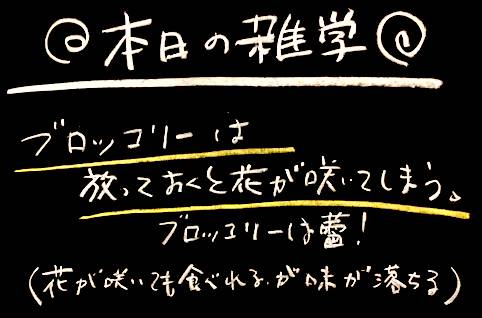 本日の雑学
ブロッコリーは
放っておくと花が咲いてしまう。
ブロッコリーは蕾！
（花が咲いても食べれるが味が落ちる）